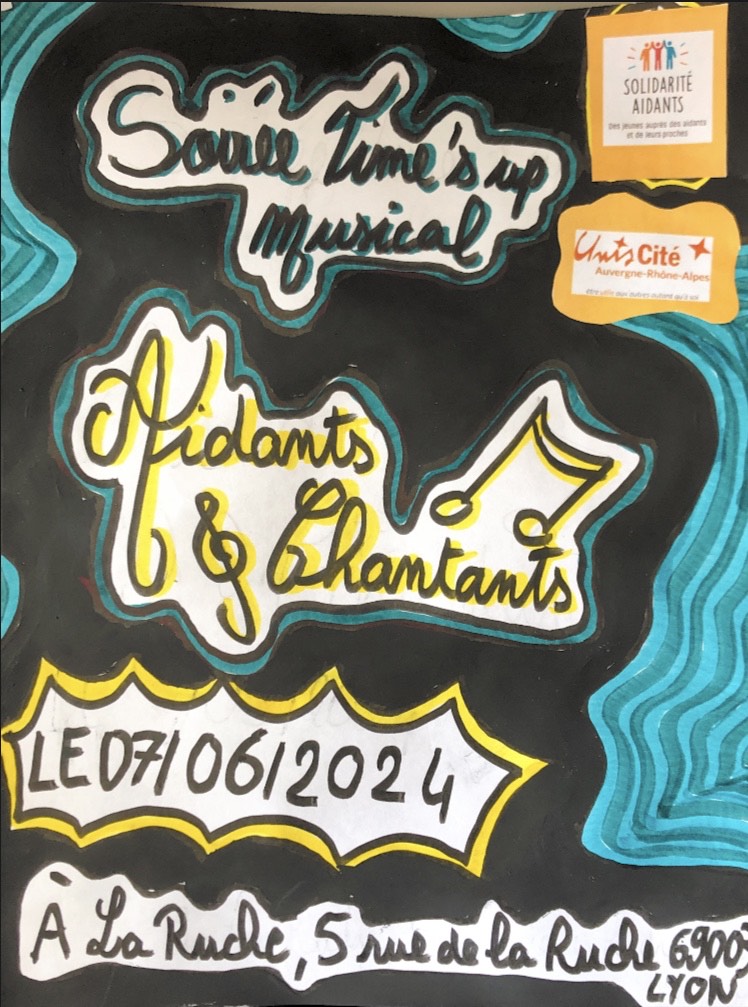 Soirée Time's up
musical
SOLIDARITÉ
AIDANTS
Des jeunes auprès des aidants
et de leurs proches
Unis Cité
Auvergne-Rhône-Alpes
être utile aux autres autant qu'à soi
Aidants
& Chantants
LE 07/06/2024
À La Ruche, 5 rue de la Ruche 69003
LYON